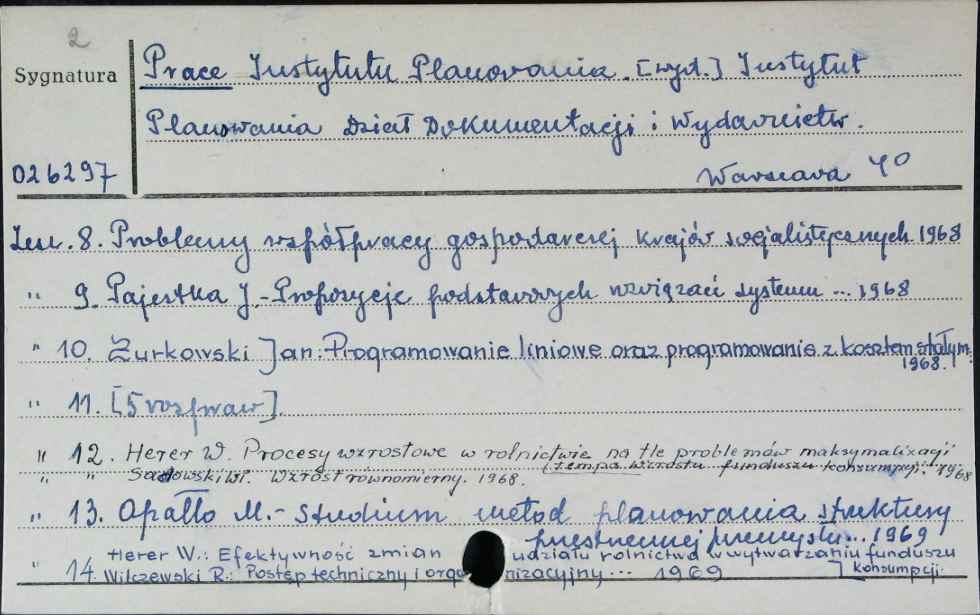 2
Sygnatura
Prace Instytutu Planowania. [wyd.] Instytut
Planowania Dział Dokumentacji i Wydawnictw.
026297
Warszawa 4°
Zesz. 8. Problemy współpracy gospodarczej krajów socjalistycznych 1968
" 9. Pajestka J. - Propozycje podstawowych rozwiązań systemu ... 1968
" 10. Żurkowski Jan: Programowanie liniowe oraz programowanie z kosztem stałym.
1968.
" 11. [5 rozpraw].
" 12. Herer W. Procesy wzrostowe w rolnictwie na tle problemów maksymalizacji
(tempa wzrostu funduszu konsumpcji. 1968
" " Sadowski Wł. Wzrost równomierny. 1968.
" 13. Opałło M. - Studium metod planowania struktury
przestrzennej przemysłu... 1969
Herer W.: Efektywność zmian udziału rolnictwa w wytwarzaniu funduszu
] konsumpcji.
" 14. Wilczewski R.: Postęp techniczny i organizacyjny ... 1969